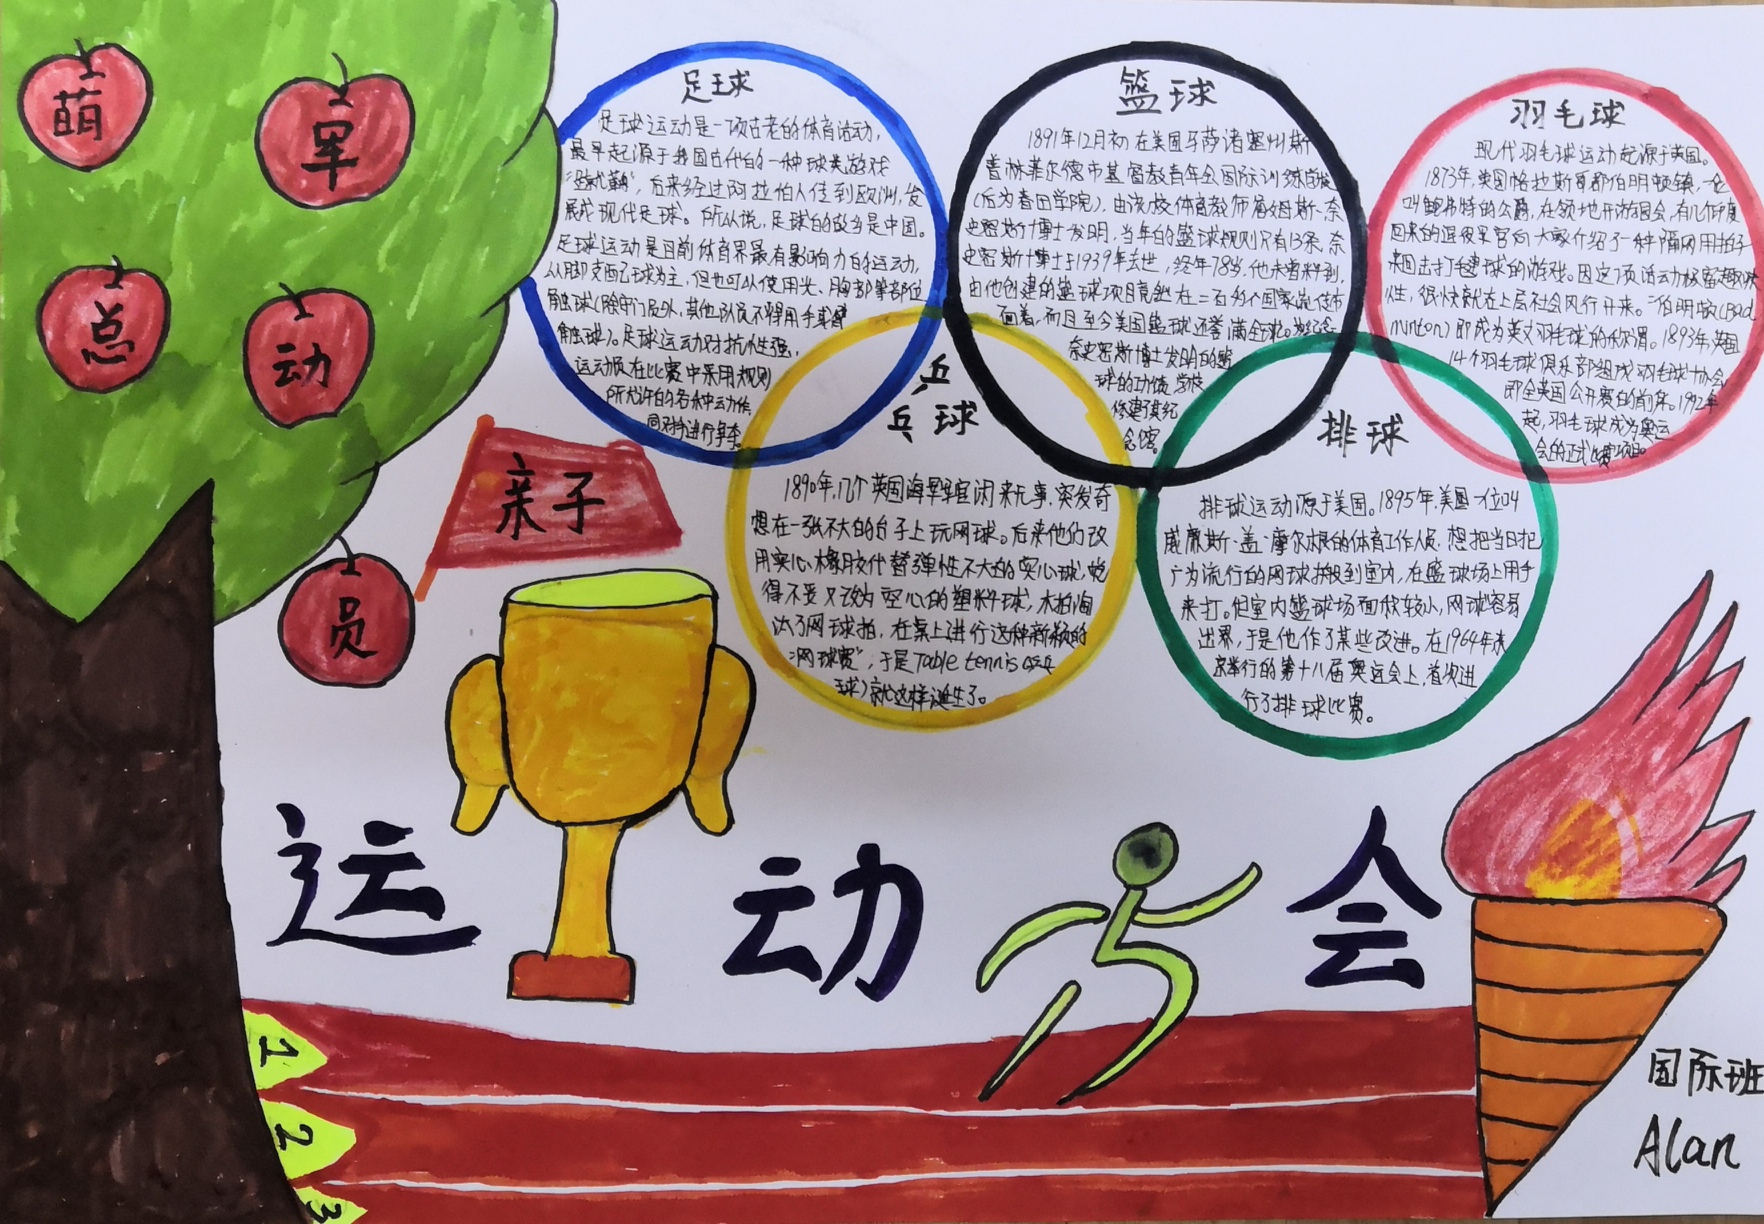 萌
军
总
动
员
亲子
足球
足球运动是一项古老的体育活动，
最早起源于我国古代的一种球类游戏
，后来经过阿拉伯人传到欧洲，发
展成现代足球。所以说，足球的故乡是中国。
足球运动是目前体育界最有影响力的运动，
从脚支配球为主，但也可以使用头、胸部等部位
触球（除守门员外，其他队员不得用手或臂
触球）。足球运动对抗性强，
运动员在比赛中采用规则
所允许的各种动作
同对手进行争夺
篮球
1891年12月初在美国马萨诸塞州斯
普林菲尔德市基督教青年会国际训练学校
（后为春田学院），由该校体育教师詹姆斯·奈
史密斯博士发明，当年的篮球规则只有13条，奈
史密斯博士于1939年去世，终年78岁，他未曾料到，
由他创建的篮球项目竟然在二百多个国家流传
而且至今美国篮球还誉满全球。为纪念
奈史密斯博士发明的篮
球的功绩，学校
修建了纪
念馆。
羽毛球
现代羽毛球运动起源于英国。
1873年，英国格拉斯哥郡伯明顿镇一位
叫鲍弗特的公爵，在领地开游园会，有几个印度
回来的退役军官向大家介绍了一种隔网用拍子
来回击打毽球的游戏。因这项活动极富趣味
性，很快就在上层社会风行开来。“伯明顿（Bad
minton）即成为英文羽毛球的名称。1893年，英国
14个羽毛球俱乐部组成羽毛球协会
即全英国公开赛的前身。1992年
起，羽毛球成为奥运
会的正式比赛项目。
乒
乓球
1890年，几个英国海军军官闲来无事，突发奇
想在一张不大的台子上玩网球。后来他们改
用实心橡胶代替弹性不大的实心球，
得不妥又改为空心的塑料球，木拍淘
汰了网球拍，在桌上进行这种新颖的
“网球赛”，于是Table tennis（乒乓
球）就这样诞生了。
排球
排球运动源于美国。1895年，美国一位叫
威廉斯·盖·摩尔根的体育工作人员，想把当日把
广为流行的网球搬到室内，在篮球场上用手
来打。但室内篮球场面积较小，网球容易
出界，于是他作了某些改进。在1964年东
京举行的第十八届奥运会上，首次进
行了排球比赛。
运动会
1
2
3
国际班
Alan